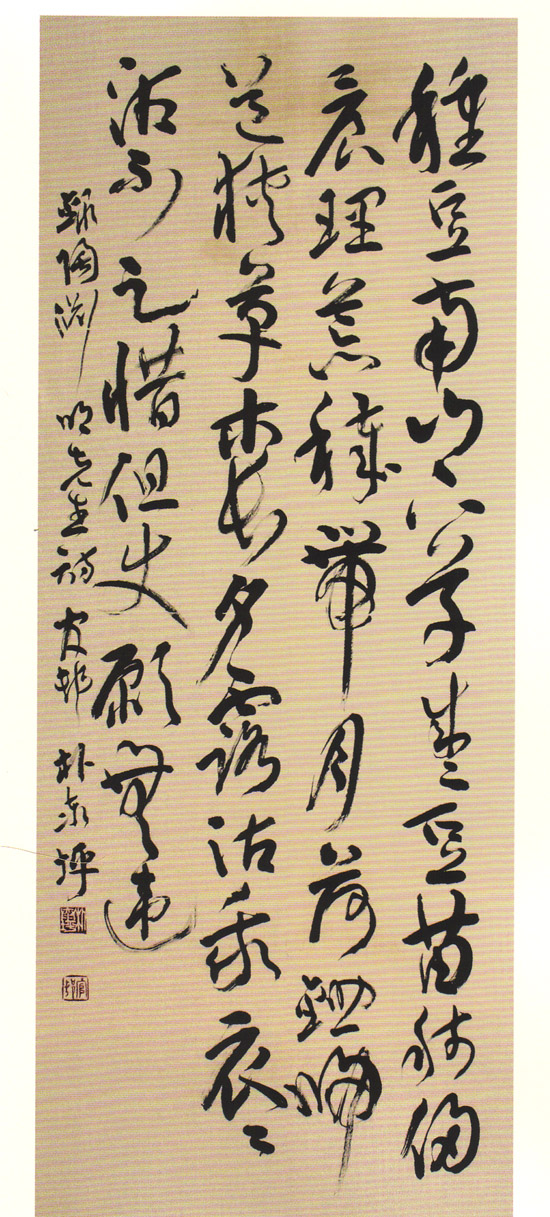 種豆南山下草盛豆苗稀侵
晨理荒穢帶月荷鋤歸
道狹草木長夕露沾我衣々
沾不足惜但使願無違
錄陶淵明先生詩 官邨 朴坪